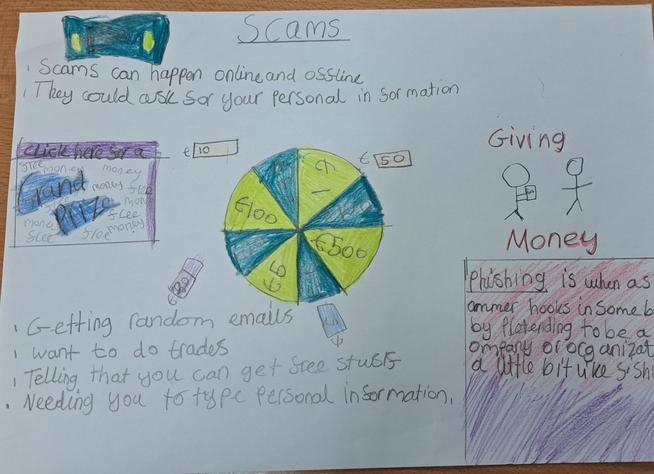 Scams
• Scams can happen online and offline
• They could ask for your personal information
Click here for a
Grand
Prize
free money money
money free
money
free
money free money
€10
€50
€1
€100
€500
€5
Giving
Money
Phishing is when a s
ammer hooks in someb
by pretending to be a
ompany or organizat
a little bit like fish
• Getting random emails
• want to do trades
• Telling that you can get free stuff
• Needing you to type personal information.